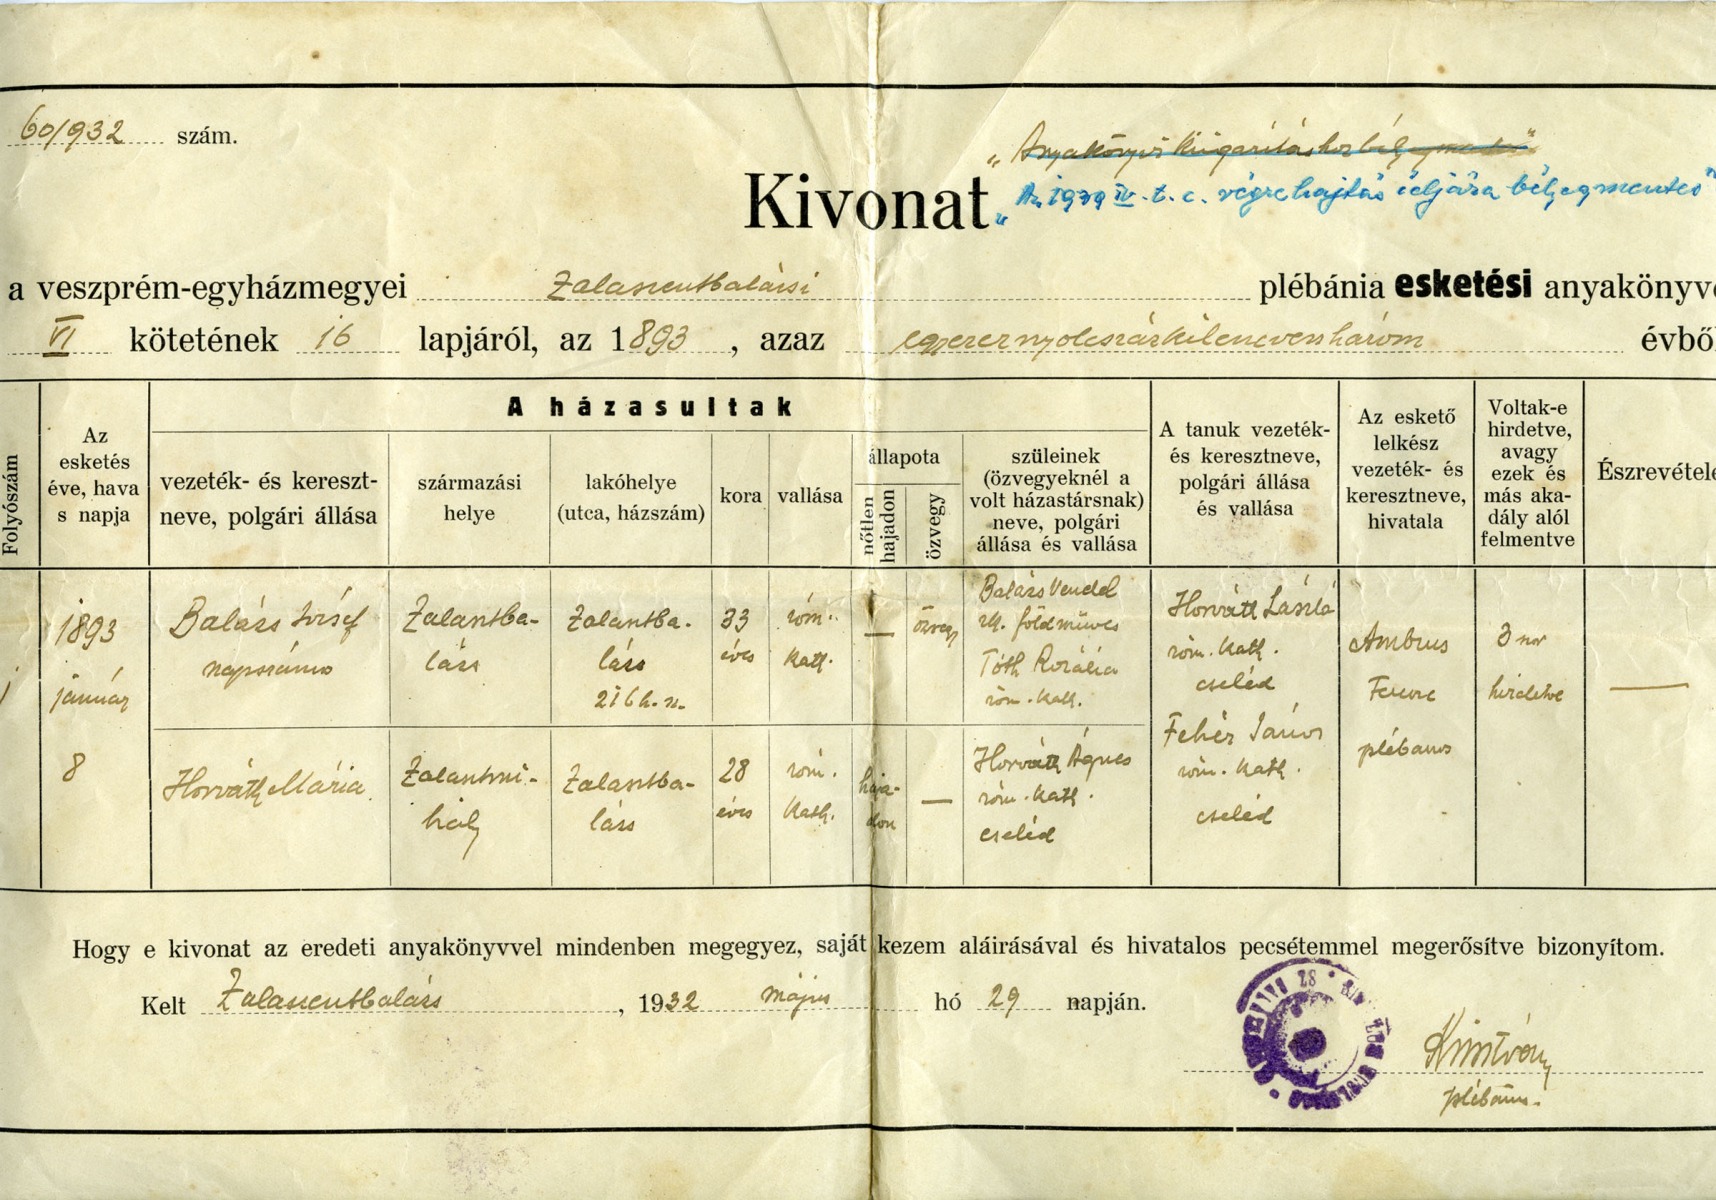 60/932 szám.
„Anyakönyvi kiigazításhoz bélyegmentes"
Kivonat
„Az 1939 IV. t. c. végrehajtás céljára bélyegmentes"
a veszprém-egyházmegyei Zalaszentbalázsi plébánia esketési anyakönyve
VI kötetének 16 lapjáról, az 1893, azaz egyezernyolcszázkilencvenhárom évből
Folyószám
Az esketés éve, hava s napja
A házasultak
vezeték- és kereszt-
neve, polgári állása
származási
helye
lakóhelye
(utca, házszám)
kora
vallása
állapota
nőtlen
hajadon
özvegy
szüleinek
(özvegyeknél a
volt házastársnak)
neve, polgári
állása és vallása
A tanuk vezeték-
és keresztneve,
polgári állása
és vallása
Az eskető
lelkész
vezeték- és
keresztneve,
hivatala
Voltak-e
hirdetve,
avagy
ezek és
más aka-
dály alól
felmentve
Észrevétele
1893
január
8
Balázs József
napszámos
Zalasztba-
lázs
Zalasztba-
lázs
216 h. sz.
33
éves
róm.
kath.
—
özvegy
Balázs Vendel
rk. földműves
Tóth Rozália
róm. kath.
Horváth László
róm. kath.
cseléd
Fehér János
róm. kath.
cseléd
Ambrus
Ferenc
plébános
3szor
hirdetve
—
Horváth Mária
Zalasztmi-
hály
Zalasztba-
lázs
28
éves
róm.
kath.
haja-
don
—
Horváth Ágnes
róm. kath.
cseléd
Hogy e kivonat az eredeti anyakönyvvel mindenben megegyez, saját kezem aláirásával és hivatalos pecsétemmel megerősítve bizonyítom.
Kelt Zalaszentbalázs, 1932 május hó 29 napján.
plébános.